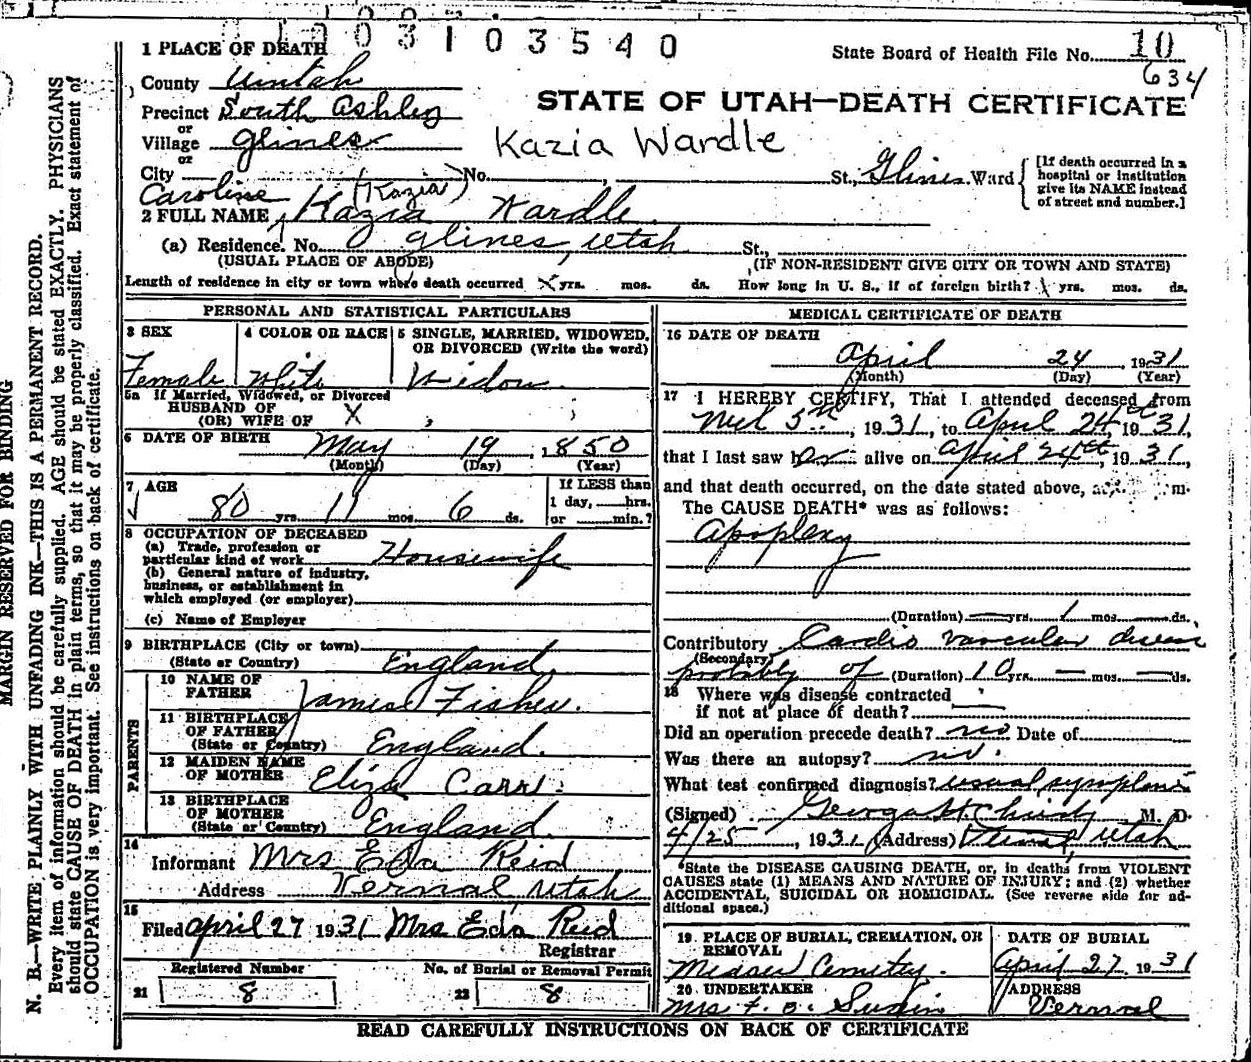 1003103540
State Board of Health File No. 10
634
STATE OF UTAH—DEATH CERTIFICATE
Kazia Wardle
1 PLACE OF DEATH
County Uintah
Precinct South Ashley
or
Village Glines
or
City No. , St., Glines Ward
[If death occurred in a hospital or institution give its NAME instead of street and number.]
Caroline (Kazia)
2 FULL NAME Kazia Wardle
(a) Residence. No. Glines, Utah St.,
(USUAL PLACE OF ABODE) (IF NON-RESIDENT GIVE CITY OR TOWN AND STATE)
Length of residence in city or town where death occurred X yrs. mos. ds. How long in U. S., if of foreign birth? yrs. mos. ds.
PERSONAL AND STATISTICAL PARTICULARS
3 SEX
Female
4 COLOR OR RACE
White
5 SINGLE, MARRIED, WIDOWED, OR DIVORCED (Write the word)
Widow
5a If Married, Widowed, or Divorced
HUSBAND OF
(OR) WIFE OF X
6 DATE OF BIRTH May 19, 1850
(Month) (Day) (Year)
7 AGE
80 yrs. 11 mos. 6 ds.
If LESS than
1 day, hrs.
or min.?
8 OCCUPATION OF DECEASED
(a) Trade, profession or
particular kind of work Housewife
(b) General nature of industry,
business, or establishment in
which employed (or employer)
(c) Name of Employer
9 BIRTHPLACE (City or town)
(State or Country) England
PARENTS
10 NAME OF
FATHER James Fisher
11 BIRTHPLACE
OF FATHER
(State or Country) England.
12 MAIDEN NAME
OF MOTHER Eliza Carr
13 BIRTHPLACE
OF MOTHER
(State or Country) England
14
Informant Mrs Eda Reid
Address Vernal Utah
15
Filed April 27 1931 Mrs Eda Reid
Registrar
Registered Number
21 8
No. of Burial or Removal Permit
22 8
MEDICAL CERTIFICATE OF DEATH
16 DATE OF DEATH
April 24, 1931
(Month) (Day) (Year)
17 I HEREBY CERTIFY, That I attended deceased from
5th, 1931, to April 24th 1931,
that I last saw her alive on April 24th, 1931,
and that death occurred, on the date stated above, at m.
The CAUSE DEATH* was as follows:
Apoplexy
(Duration) yrs. 1 mos. ds.
Contributory Cardio vascular
(Secondary)
probably of (Duration) 10 yrs. — mos. — ds.
18 Where was disease contracted
if not at place of death?
Did an operation precede death? no Date of
Was there an autopsy? no.
What test confirmed diagnosis? usual symptoms
(Signed) George H. Christy M. D.
4/25, 1931 (Address) Vernal, Utah
*State the DISEASE CAUSING DEATH, or, in deaths from VIOLENT
CAUSES state (1) MEANS AND NATURE OF INJURY; and (2) whether
ACCIDENTAL, SUICIDAL OR HOMICIDAL. (See reverse side for ad-
ditional space.)
19 PLACE OF BURIAL, CREMATION, OR
REMOVAL
Cemetry.
DATE OF BURIAL
April 27, 1931
20 UNDERTAKER
Mrs F. O. Swain
ADDRESS
Vernal
READ CAREFULLY INSTRUCTIONS ON BACK OF CERTIFICATE
MARGIN RESERVED FOR BINDING
N. B.—WRITE PLAINLY WITH UNFADING INK—THIS IS A PERMANENT RECORD.
Every item of information should be carefully supplied. AGE should be stated EXACTLY. PHYSICIANS
should state CAUSE OF DEATH in plain terms, so that it may be properly classified. Exact statement of
OCCUPATION is very important. See instructions on back of certificate.